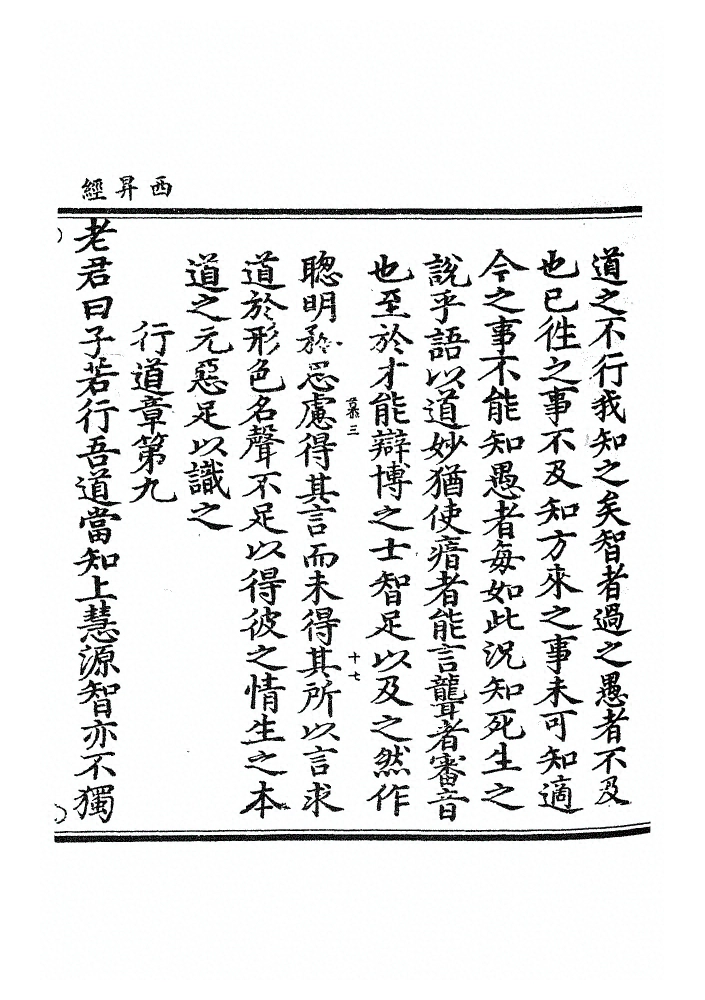 西昇經
道之不行我知之矣智者過之愚者不及
也已徃之事不及知方來之事未可知適
今之事不能知愚者每如此況知死生之
說乎語以道妙猶使瘖者能言聾者審音
也至於才能辯博之士智足以及之然作
慕三
十七
聰明矜思慮得其言而未得其所以言求
道於形色名聲不足以得彼之情生之本
道之元惡足以識之
行道章第九
老君曰子若行吾道當知上慧源智亦不獨